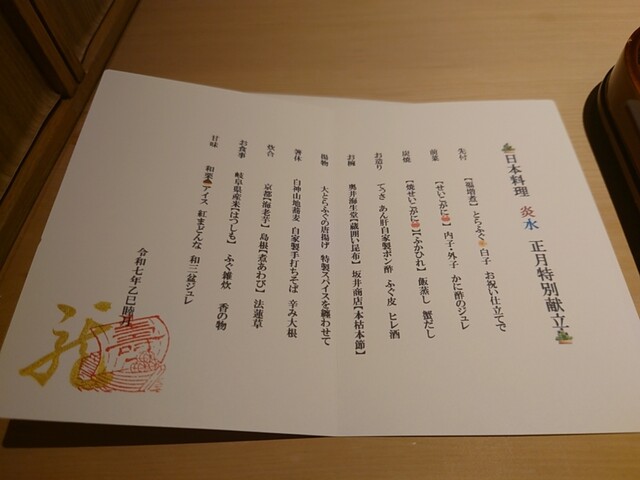 日本料理 炎水 正月特別献立
先付 【福増煮】とらふぐ白子 お祝い仕立てで
前菜 【せいこがに】内子・外子 かに酢のジュレ
炭焼 【焼せいこがに】【ふかひれ】飯蒸し 蟹だし
お造り てっさ あん肝自家製ポン酢 ふぐ皮 ヒレ酒
お椀 奥井海生堂【蔵囲い昆布】 坂井商店【本枯本節】
揚物 大とらふぐの唐揚げ 特製スパイスを纏わせて
箸休 白神山地蕎麦 自家製手打ちそば 辛み大根
炊合 京都【海老芋】 島根【煮あわび】 法蓮草
お食事 岐阜県産米【はつしも】 ふぐ雑炊 香の物
甘味 和栗アイス 紅まどんな 和三盆ジュレ
令和七年乙巳睦月
龍
寿